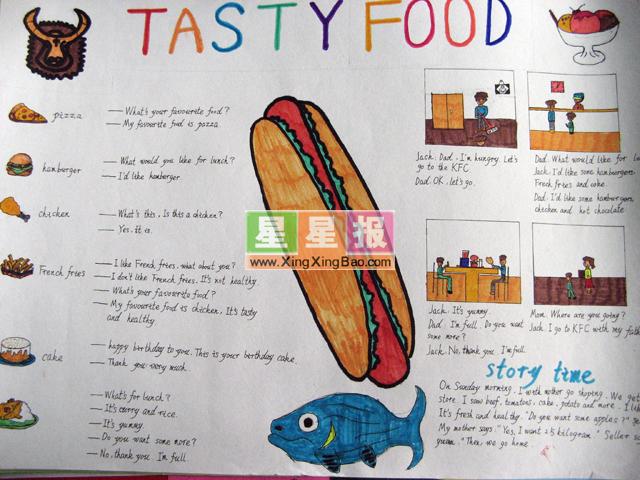 TASTY FOOD
pizza
— What's your favourite food?
— My favourite food is pazza.
hamburger
— What would you like for lunch?
— I'd like hamberger.
chicken
— What's this, Is this a chicken?
— Yes, it is.
French fries
— I like French fries, what about you?
— I don't like French fries. It's not healthy
— What's your favourite food?
— My favourite food is chicken, It's tasty
and healthy
cake
— happy birthday to you, This is your berthday cake.
— Thank you very much.
— What's for lunch?
— It's curry and rice.
— It's yummy.
— Do you want some more?
— No, thank you I'm full.
星星报
www.XingXingBao.com
Jack: Dad, I'm hungry. Let's
go to the KFC
Dad: OK. let's go.
Dad: What would like for lu
Jack: I'd like some hamburgers,
French fries and coke.
Dad: I'd like some hamburgers,
chicken and hot chocolate
Jack: It's yummy.
Dad: I'm full. Do you want
some more?
Jack: No, thank you I'm full.
Mom: Where are you going?
Jack: I go to KFC with my fath
story time
On Sunday morning, I with mother go shoping. We get
store. I saw beef, tomatons, cake, potato and more. I
It's fresh and healthy. "Do you want some apples?"
My mother says: "Yes, I want 2.5 kilogram." Seller
yuan." Then, we go home.